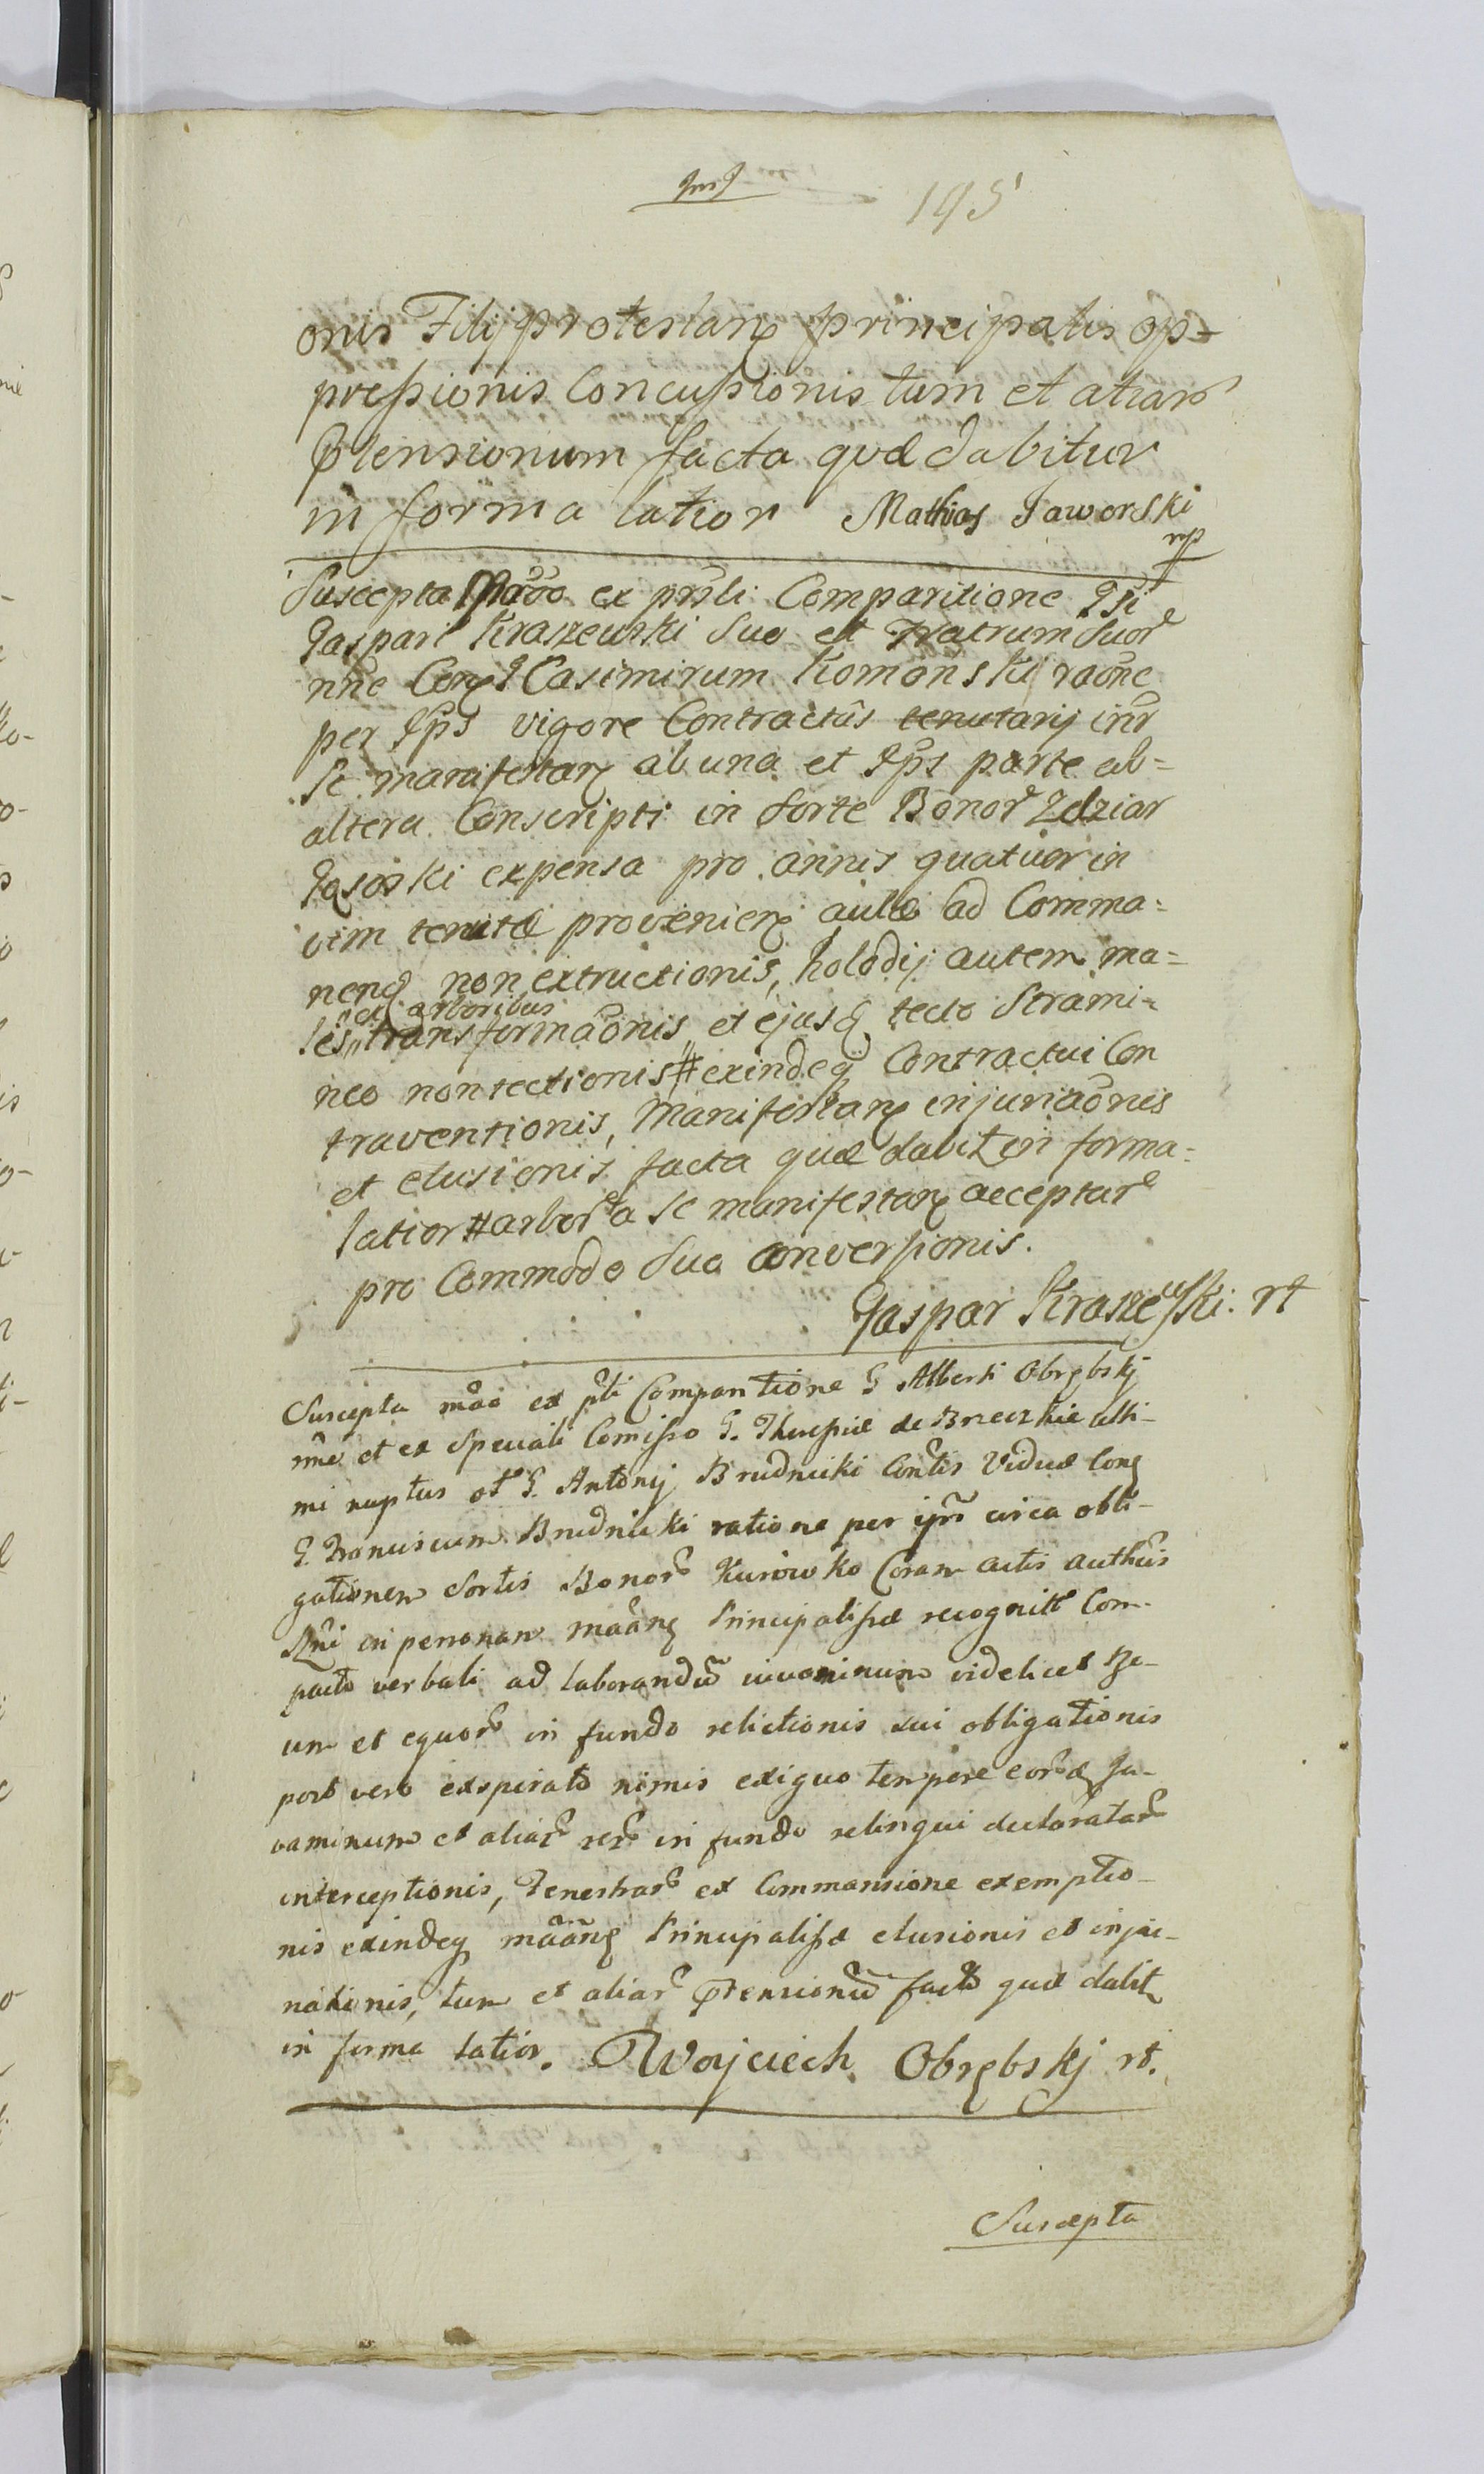 195
onis Filij protestan principalis op-
pressionis Concussionis tum et aliar
Ptensionum facta quæ dabitur
in forma latior Mathias Jaworski
mp
Suscepta ex prsli Comparitione Gsi
Gaspari Kraszewski Suo et Fratrum Suor
nne Con G Casimirum Komonski raõne
per Gps vigore Contractûs tenutarij inr
se manifestan ab una et Gps parte ab=
altera Conscripti in Sorte Bonor Zdziar
Gąsoski expensa pro annis quatuor in
vim tenutæ provenien aulæ ad Comma=
nend non extructionis, holodij autem ma=
ex arboribus
les, transformãonis et ejusq tecto Strami=
neo non tectionis # exindeq Contractui Con
traventionis, Manifestan injuriaõnis
et elusionis facta quæ dabit in forma=
latior # arbor a se manifestan acceptar
pro Commodo Suo conversionis.
Gaspar Kraszewski: rt
Suscepta mão ex pti Comparitione G Alberti Obrębskj
nne et ex Speciali Comisso G. de Brzezkie ulti-
mi nuptus ol G. Antonij Brudnicki Contis Viduæ Con
G. Franciscum Brudnicki ratione per ipm circa obli-
gationem Sortis Bonor Kurowko Coram actis authcis
in personam mãan Principalissæ recognitt Com-
pacto verbali ad laborandũ iuvaminum videlicet
um et equor in fundo relictionis sui obligationis
post vero exspirato nimis exiguo tempore eord Ju-
vaminum et aliar rer in fundo relinqui declaratar
interceptionis, Fenestrar ex Commansione exemptio-
nis exindeq mãan Principalissæ elusionis et injur-
iationis, tum et aliar Ptensionũ facta quæ dabit
in forma latior. Woyciech Obrębskj rt.
Suscepta